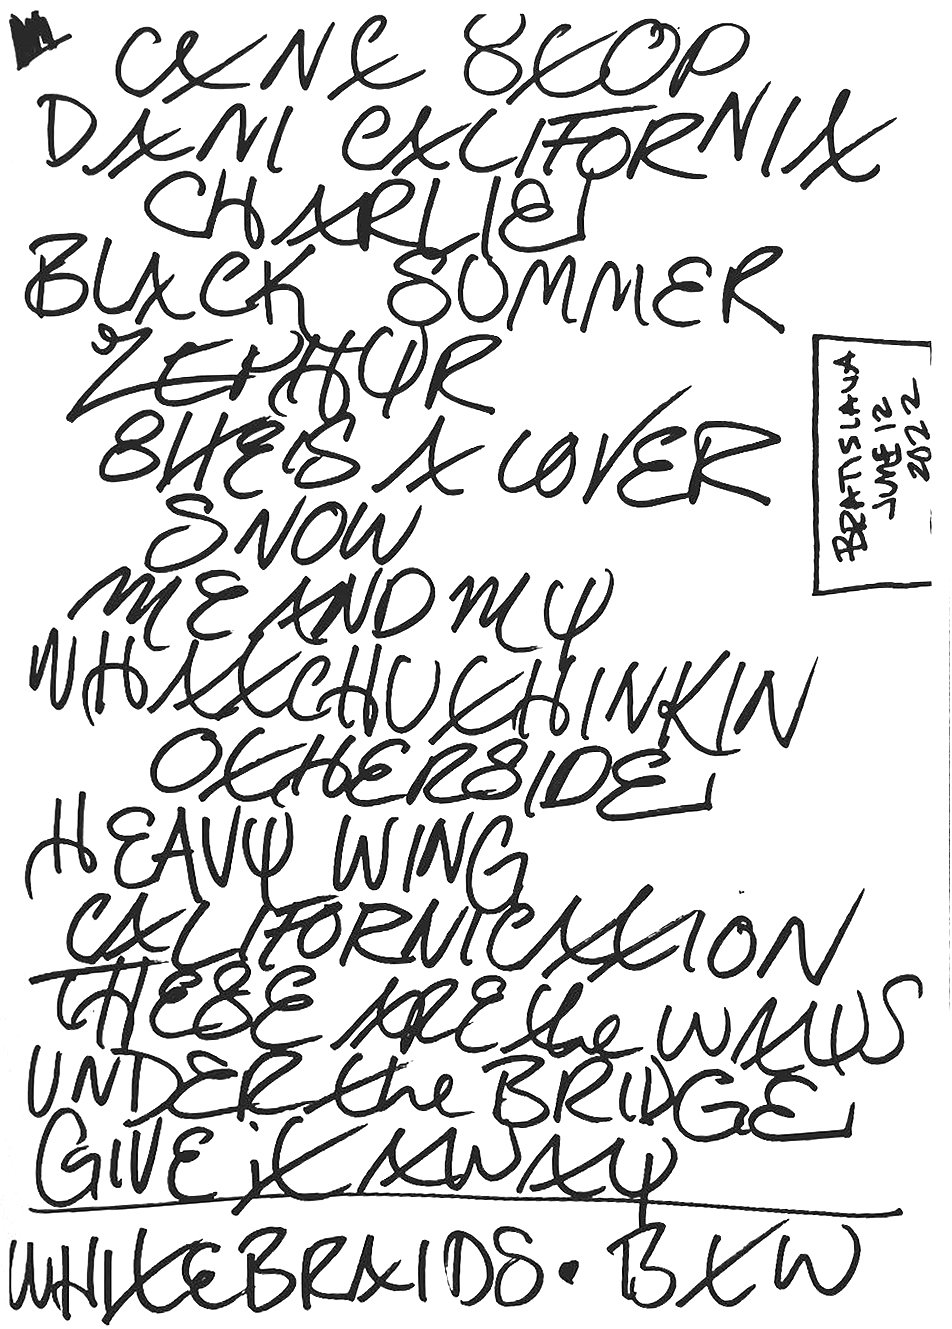 CAN'T STOP
DANI CALIFORNIA
CHARLIE
BLACK SUMMER
ZEPHYR
SHE'S A LOVER
SNOW
ME AND MY
WHATCHUTHINKIN
OTHERSIDE
HEAVY WING
CALIFORNICATION
THESE ARE the WAYS
UNDER the BRIDGE
GIVE iT AWAY
WHITEBRAIDS • BTW
BRATISLAVA
JUNE 12
2022